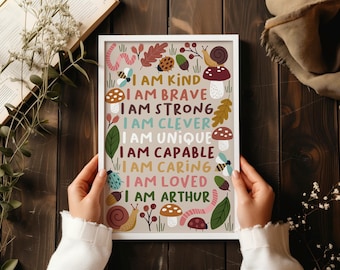 I AM KIND
I AM BRAVE
I AM STRONG
I AM CLEVER
I AM UNIQUE
I AM CAPABLE
I AM CARING
I AM LOVED
I AM ARTHUR